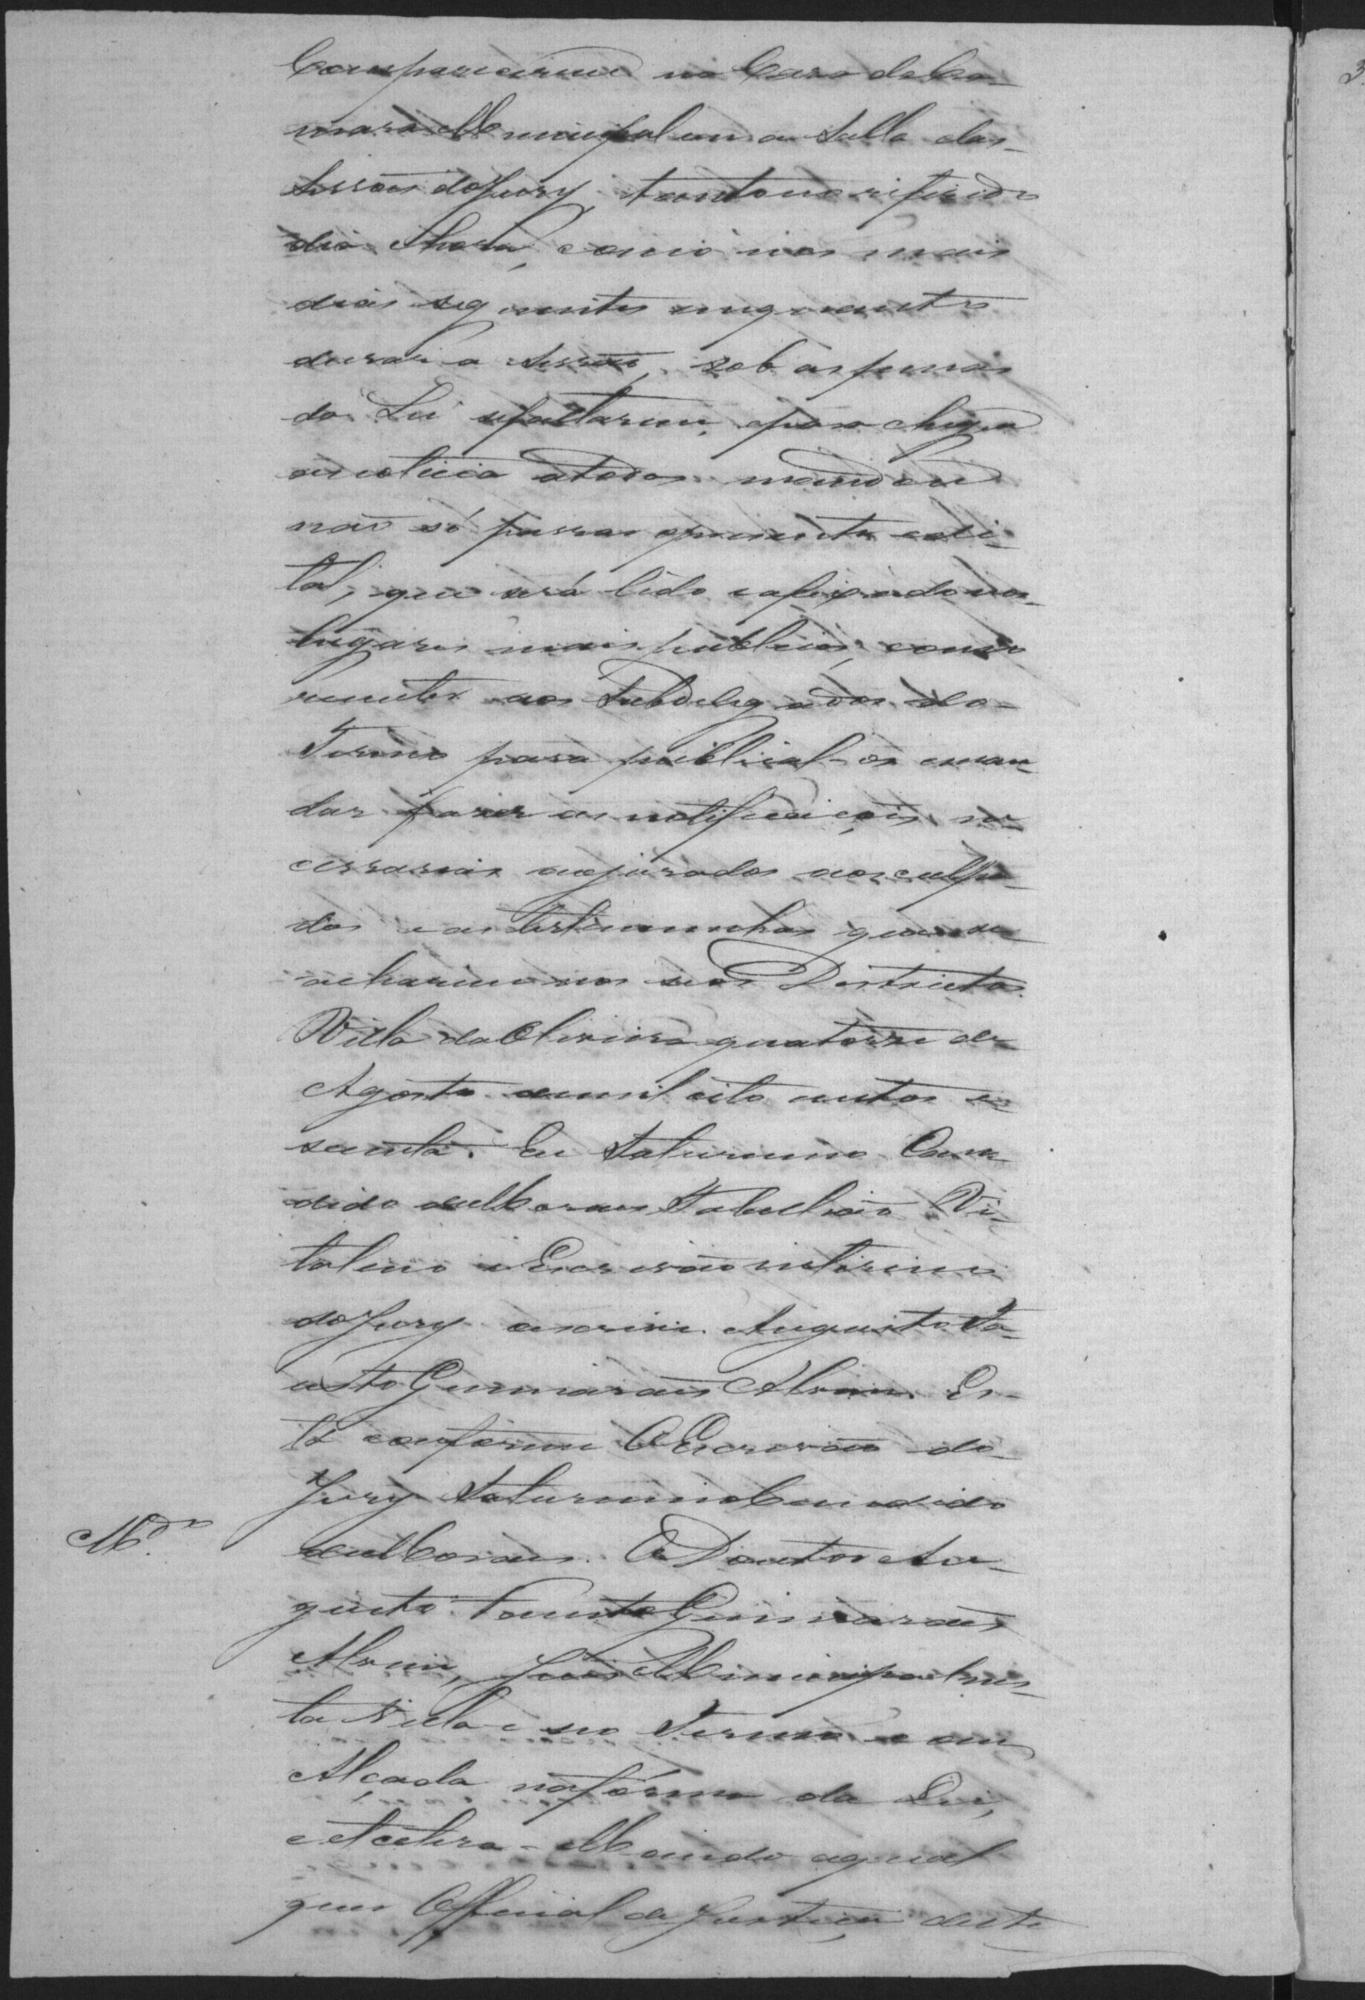 Comparecerem na Casa da Ca-
mara Municipal em a Salla das
Sessões do Jury, tanto no referido
dia e hora, como nos mais
dias seguintes emquanto
durar a Sessão, sob as penas
da Lei se faltarem, e para chegar
a noticia a todos mandou
não só passar o presente edi-
tal, que será lido e afixado nos
lugares mais publicos, como
remeter aos Subdelegados do
Termo para publical-os e man
dar fazer as notificações ne-
cessarias aos jurados aos culpa-
dos e as testemunhas que se
acharem nos seos Districtos
Villa da Oliveira quatorze de
Agosto de mil oito centos e
secenta. Eu Saturnino Can
dido de Moraes Tabellião Vi-
talicio e Escrivão interino
do Jury o escrevi. Augusto Fa-
usto Guimarães Alvim. Es-
tá conforme O Escrivão do
Jury Saturnino Candido
de Moraes. O Doutor Au-
gusto Fausto Guimarães
M.do
Alvim, Juiz Municipal nes-
ta Villa e seo Termo e em
Alçada na fórma da Lei,
etcetera - Mando a qual
quer Official de Justiça deste